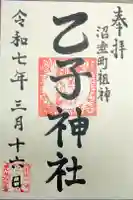 奉拝
沼垂町祖神
乙子神社
令和七年三月十六日